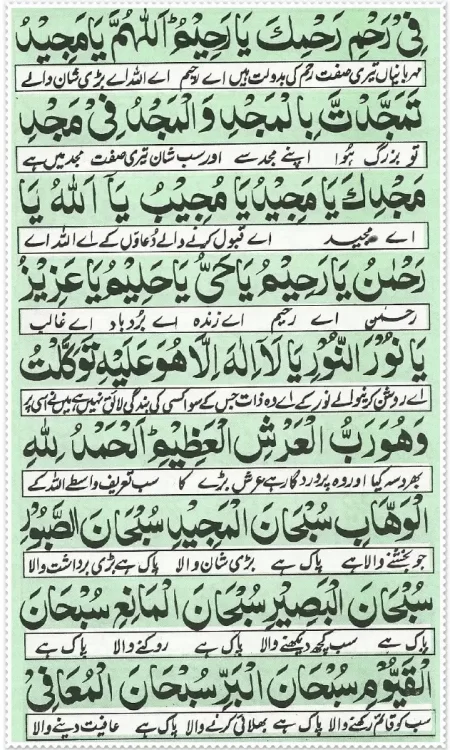 فِىْ رَحْمِ رَحْمِكَ يَا رَحِيْمُ ؕ اَللّٰهُمَّ يَا مَجِيْدُ
مہربانیاں تیری صفت رحم کی بدولت ہیں اے رحیم اے اللہ اے بڑی شان والے
تَمَجَّدْتَّ بِالْمَجْدِ وَالْمَجْدُ فِىْ مَجْدِ
تو بزرگ ہُوا اپنے مجد سے اور سب شان تیری صفت مجد میں ہے
مَجْدِكَ يَا مَجِيْدُ يَا مُجِيْبُ يَآ اَللّٰهُ يَا
اے مجید اے قبول کرنے والے دُعاؤں کے اے اللہ اے
رَحْمٰنُ يَا رَحِيْمُ يَا حَىُّ يَا حَلِيْمُ يَا عَزِيْزُ
رحمٰن اے رحیم اے زندہ اے بُردباد اے غالب
يَا نُوْرَ النُّوْرِ يَا لَآ اِلٰهَ اِلَّا هُوَ عَلَيْهِ تَوَكَّلْتُ
اے روشن کرنیوالے نور کے اے وہ ذات جس کے سوا کسی کی بندگی لائق نہیں ہے میں نے اسی پر
وَهُوَ رَبُّ الْعَرْشِ الْعَظِيْمِ ؕ اَلْحَمْدُ لِلّٰهِ
بھروسہ کیا اور وہ پروردگار ہے عرش بڑے کا سب تعریف واسطے اللہ کے
الْوَهَّابِ سُبْحَانَ الْمَجِيْدِ سُبْحَانَ الصَّبُوْرِ
جو بخشنے والا ہے پاک ہے بڑی شان والا پاک ہے بڑی برداشت والا
سُبْحَانَ الْبَصِيْرِ سُبْحَانَ الْمَانِعِ سُبْحَانَ
پاک ہے سب کچھ دیکھنے والا پاک ہے روکنے والا پاک ہے
الْقَيُّوْمِ سُبْحَانَ الْبَرِّ سُبْحَانَ الْمُعَافِىْ
سب کو قائم رکھنے والا پاک ہے بھلائی کرنے والا پاک ہے عافیت دینے والا